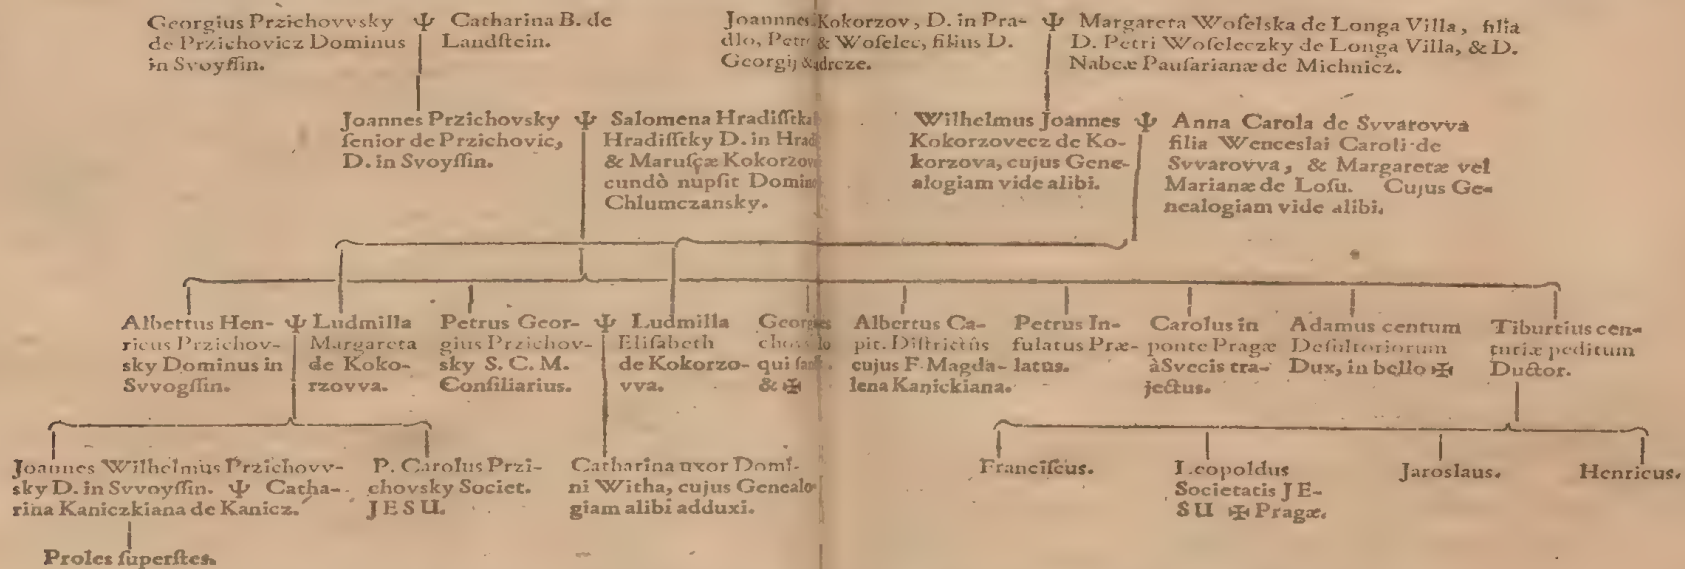 Georgius Przichovvsky
de Przichovicz Dominus
in Svoyſſin.
Ψ
Catharina B. de
Landſtein.
Joannnes Kokorzov, D. in Pra-
dlo, & Woſelec, filius D.
Georgij
Ψ
Margareta Woſelska de Longa Villa, filia
D. Petri Woſeleczky de Longa Villa, & D.
Nabeæ Pauſarianæ de Michnicz.
Joannes Przichovsky
ſenior de Przichovic,
D. in Svoyſſin.
Ψ
Salomena
Hradiſſtky D. in
& Maruſçæ
cundò nupſit
Chlumczansky.
Wilhelmus Joannes
Kokorzovecz de Ko-
korzova, cujus Gene-
alogiam vide alibi.
Ψ
Anna Carola de Svvarovva
filia Wenceslai Caroli de
Svvarovva, & Margaretæ vel
Marianæ de Loſu. Cujus Ge-
nealogiam vide alibi.
Albertus Hen-
ricus Przichov-
sky Dominus in
Svvogſſin.
Ψ
Ludmilla
Margareta
de Koko-
rzovva.
Petrus Geor-
gius Przichov-
sky S. C. M.
Conſiliarius.
Ψ
Ludmilla
Eliſabeth
de Kokorzo-
vva.
qui
& ✠
Albertus Ca-
pit. Diſtrictûs
cujus F. Magda-
lena Kanickiana.
Petrus In-
fulatus Præ-
latus.
Carolus in
ponte Pragæ
àSvecis tra-
jectus.
Adamus centum
Deſultoriorum
Dux, in bello ✠
Tiburtius cen-
turiæ peditum
Ductor.
Joannes Wilhelmus Przichovv-
sky D. in Svvoyſſin. Ψ Catha-
rina Kaniczkiana de Kanicz.
P. Carolus Przi-
chovsky Societ.
JESU.
Catharina uxor Domi-
ni Witha, cujus Genealo-
giam alibi adduxi.
Franciſcus.
Leopoldus
Societatis JE-
SU ✠ Pragæ.
Jaroslaus.
Henricus.
Proles ſuperſtes.